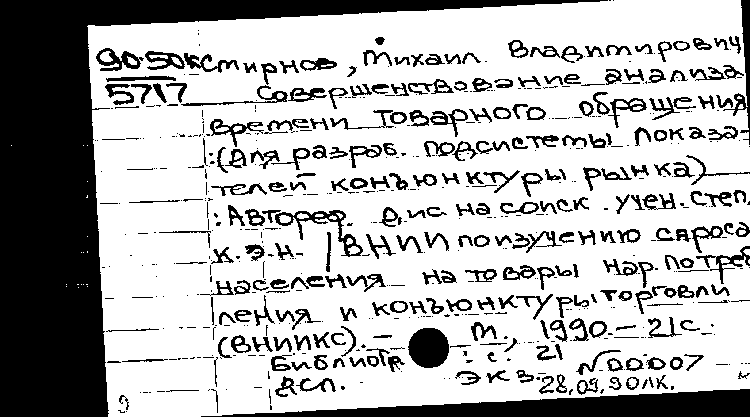 90-50к Смирнов, Михаил Владимирович
5717 Совершенствование анализа
времени товарного обращения
:(Для разраб. подсистемы показа-
телей конъюнктуры рынка)
:Автореф. дис. на соиск. учен. степ.
к.э.н. / ВНИИ по изучению спроса
населения на товары нар. потреб
ления и конъюнктуры торговли
(ВНИИКС). - М., 1990. - 21 с.
Библиогр. : с. 21
ДСП. Экз. N00007
28,09,90 ЛК.
9